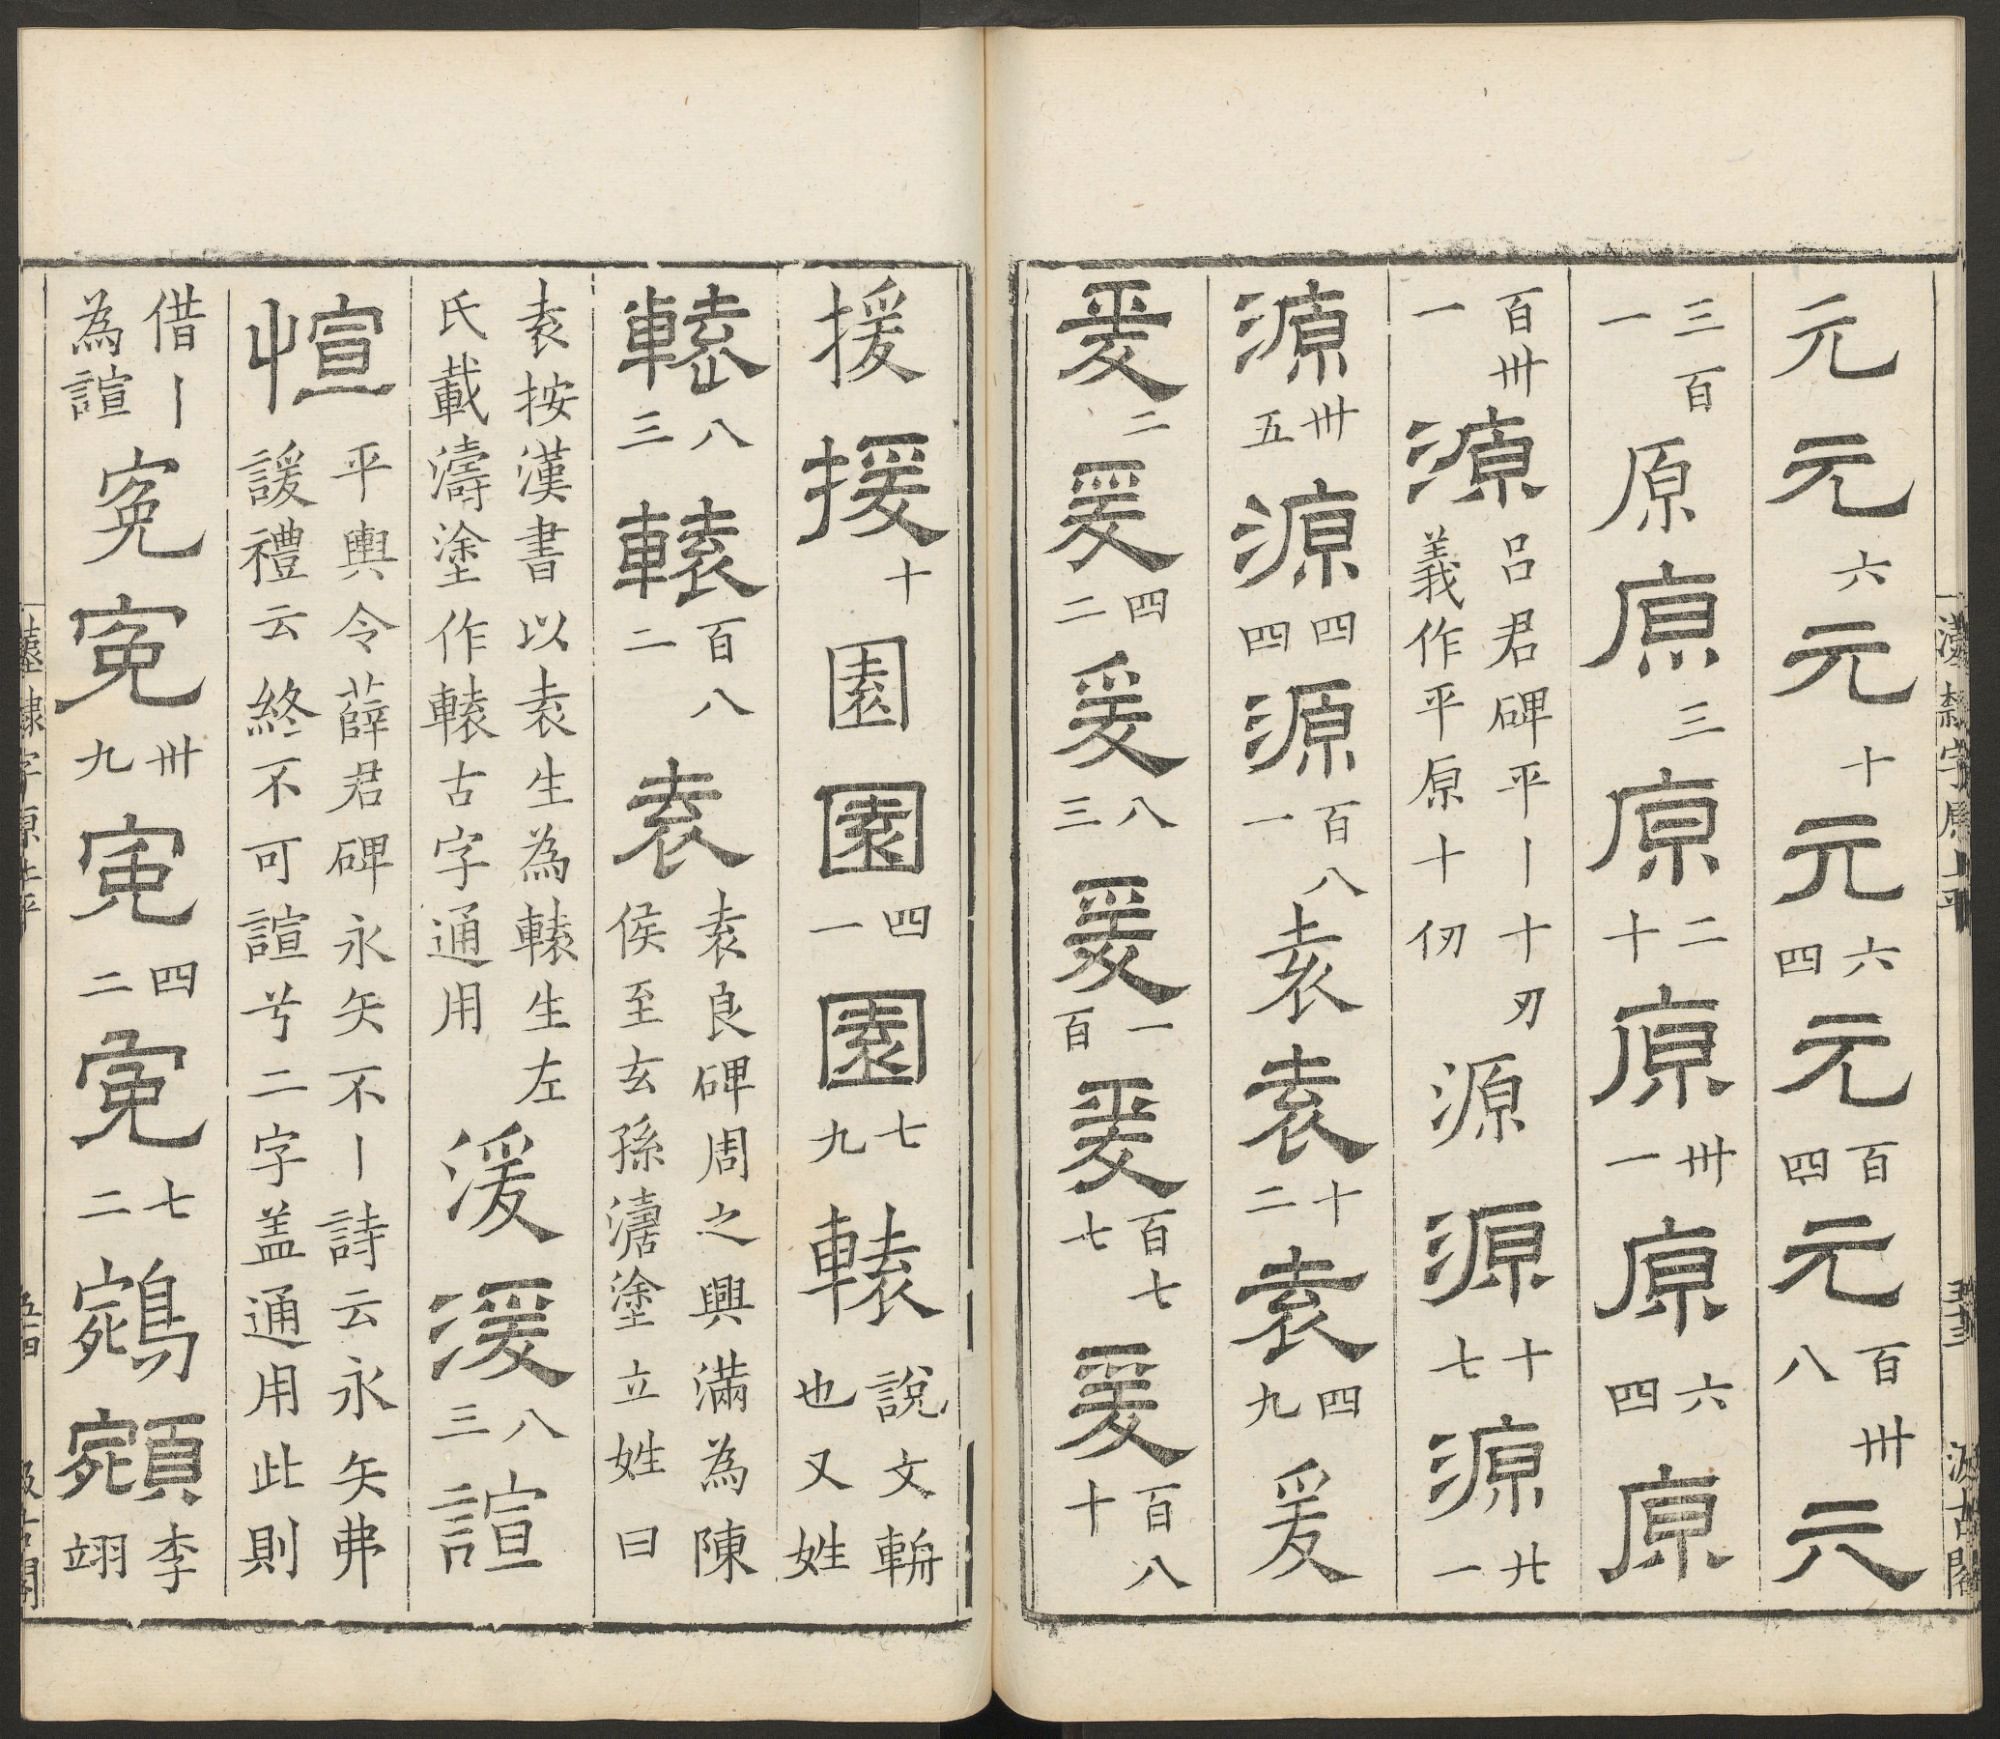 漢隸字原上平 五十三 汲古閣
元元六元十元六四元百四元百卌八元
三百一原原三原二十原卌一原六四原
百卌一源呂君碑平丨十刃義作平原十仞源源十七源廿一
源卌五源四四源百八一袁袁十二袁四九爰
爰二爰四二爰八三爰一百爰百七七爰百八十
援援十園園四一園七九轅說文輈也又姓
轅八三轅百八二袁袁良碑周之興滿為陳侯至玄孫濤塗立姓曰
袁按漢書以袁生為轅生左氏載濤塗作轅古字通用湲湲八三諠
愃平輿令薛君碑永矢不丨詩云永矢弗諼禮云終不可諠兮二字盖通用此則
借丨為諠冤冤卌九冤四二冤七二鵷李翊